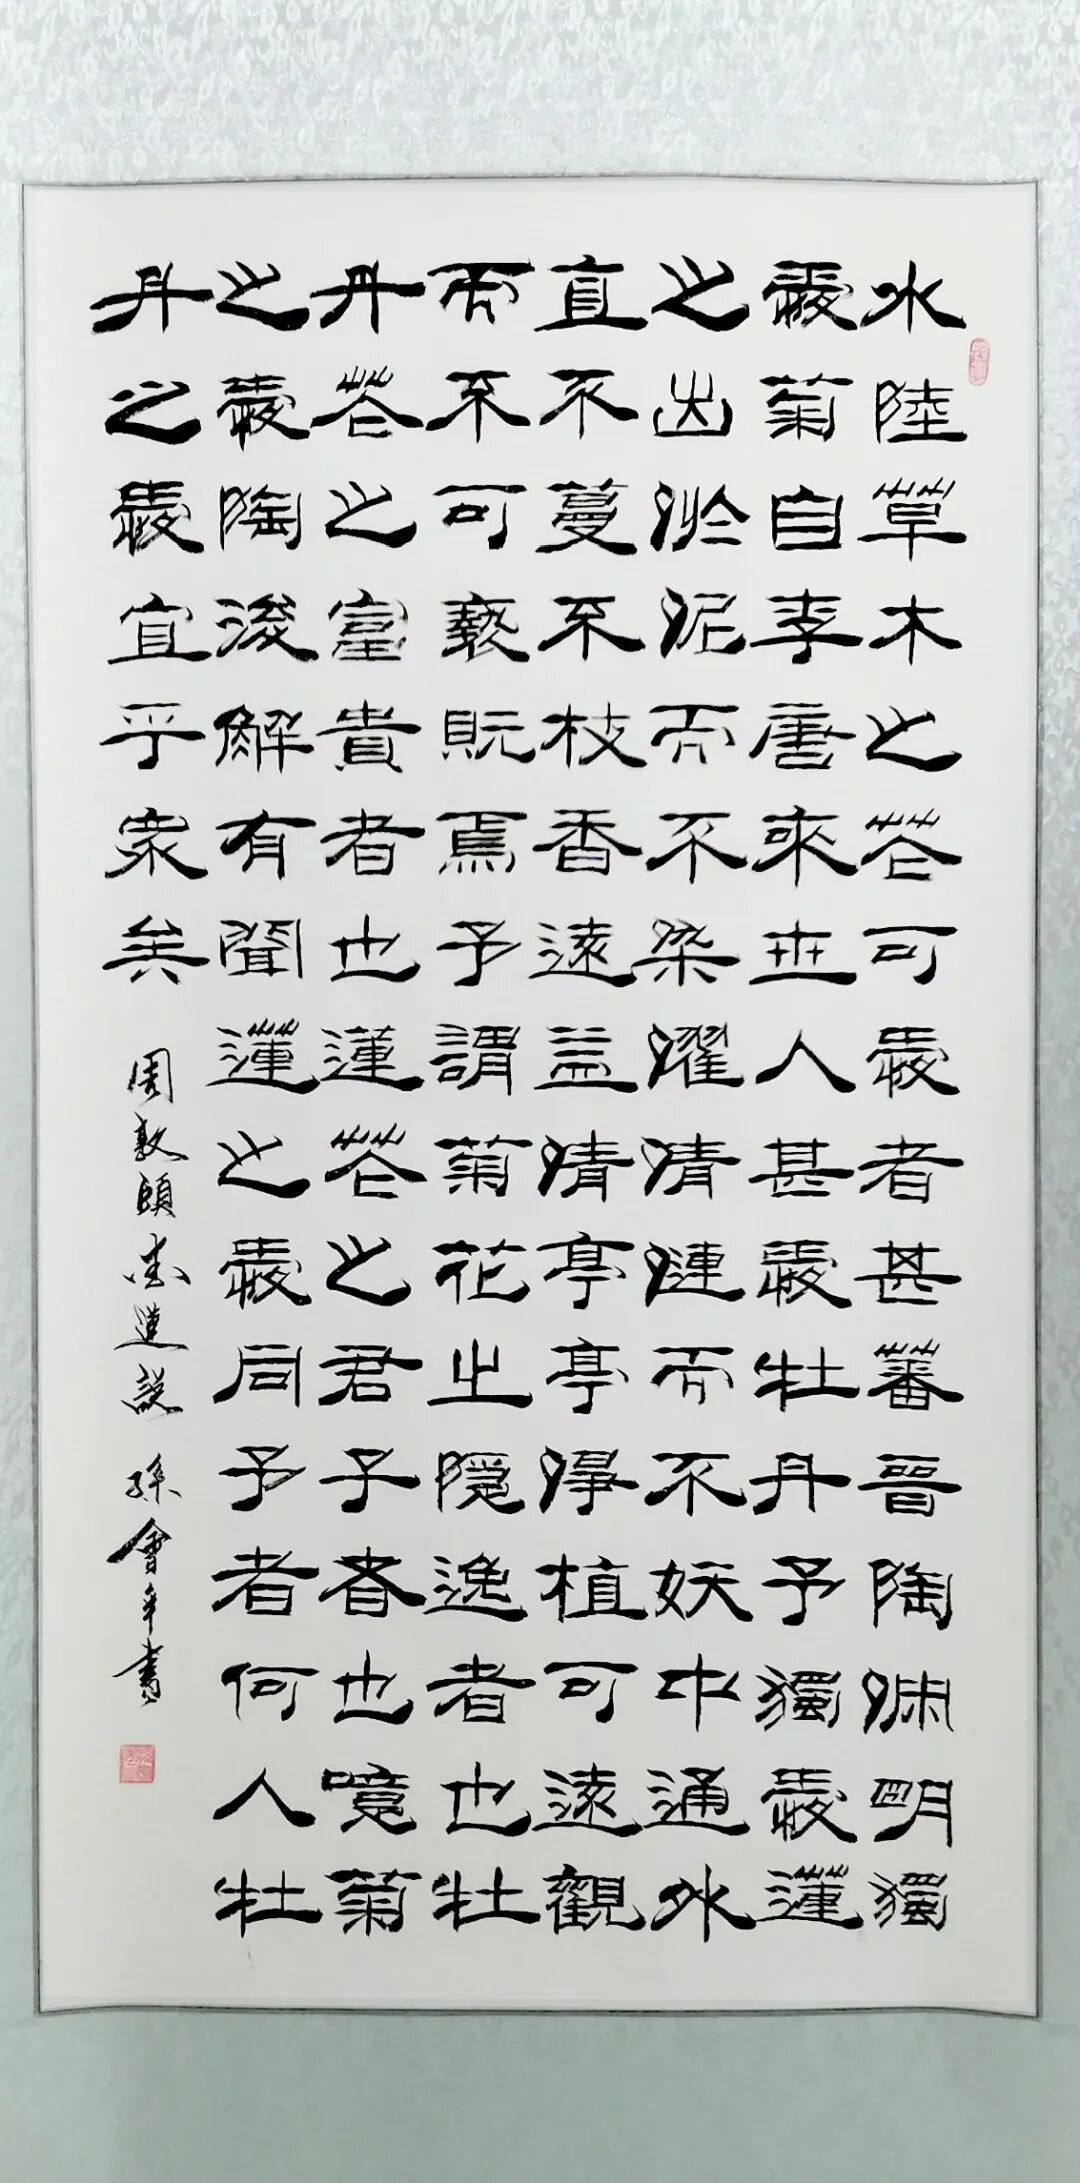 水陸草木之芲可愛者甚蕃晉陶淵明獨
愛菊自李唐來世人甚愛牡丹予獨愛蓮
之出淤泥而不染濯清漣而不妖中通外
直不蔓不枝香遠益清亭亭淨植可遠觀
而不可褻翫焉予謂菊花之隱逸者也牡
丹芲之富貴者也蓮芲之君子者也噫菊
之愛陶後鮮有聞蓮之愛同予者何人牡
丹之愛宜乎眾矣 周敦頤愛蓮說 孫會年書